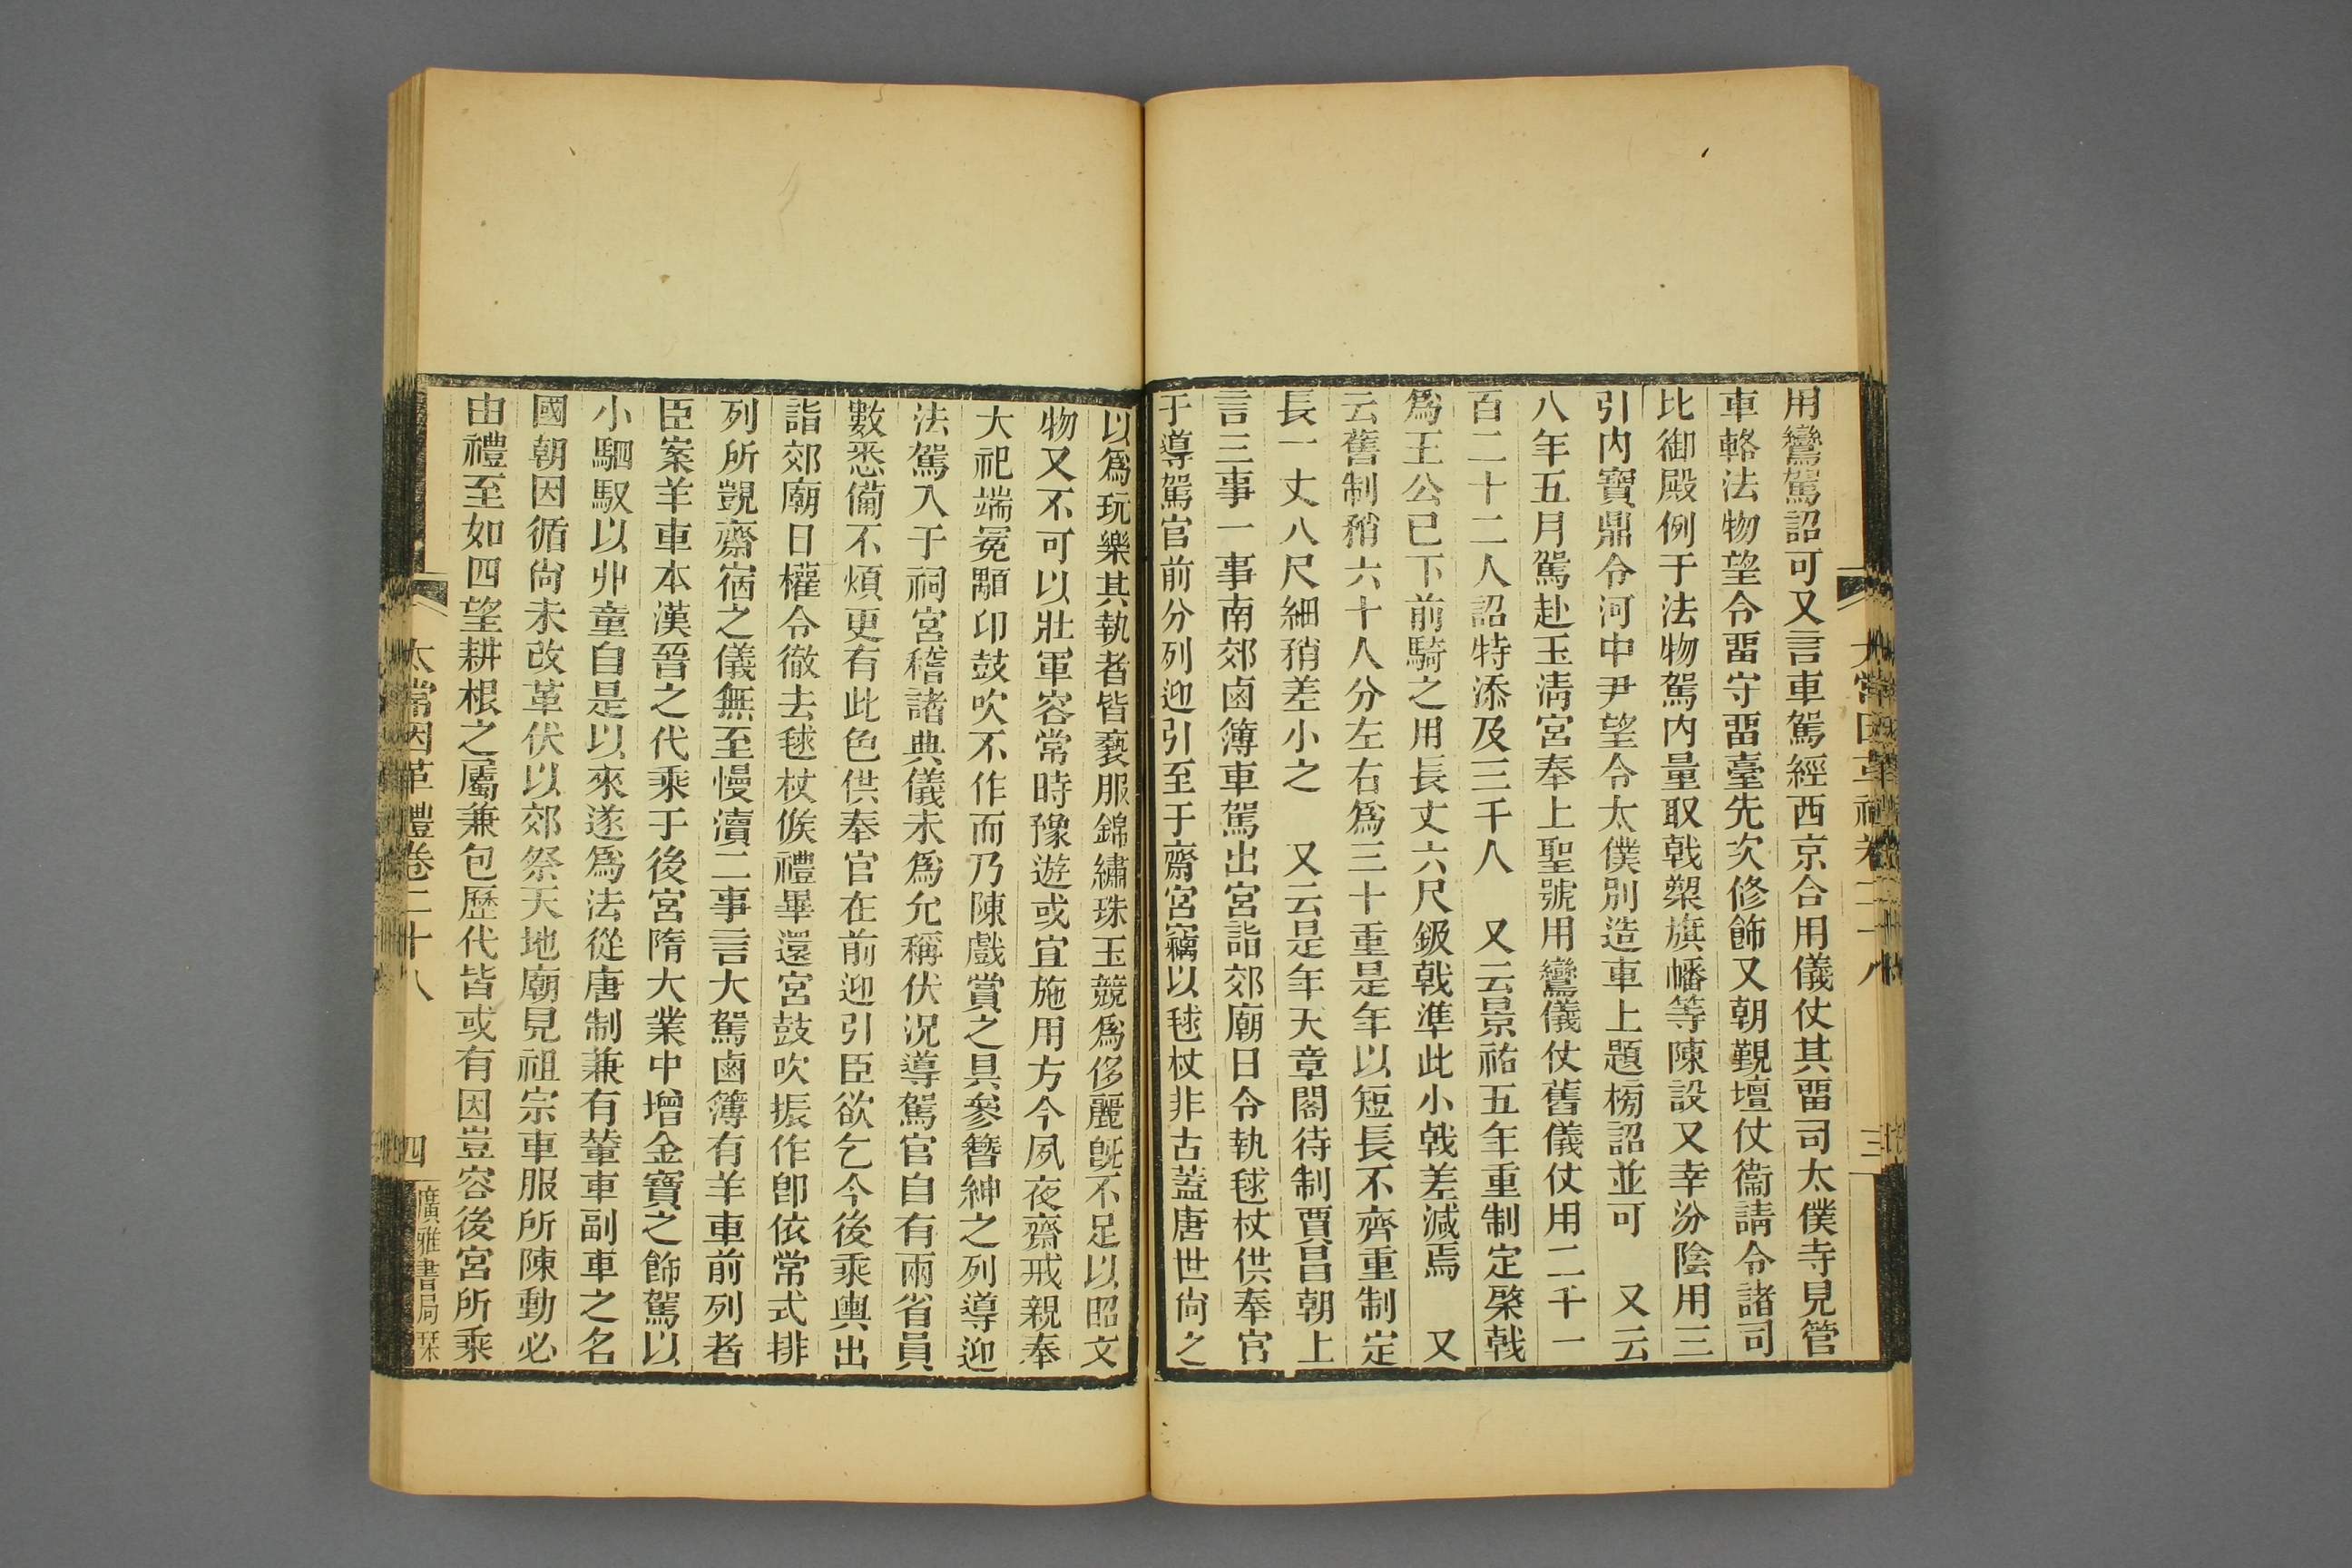 用鸞駕詔可又言車駕經西京合用儀仗其畱司太僕寺見管
車輅法物望令畱守畱臺先次修飾又朝覲壇仗衞請令諸司
比御殿例于法物駕內量取戟槊旗幡等陳設又幸汾陰用三
引內寶鼎令河中尹望令太僕別造車上題榜詔並可　又云
八年五月駕赴玉淸宮奉上聖號用鸞儀仗舊儀仗用二千一
百二十二人詔特添及三千人　又云景祐五年重制定棨戟
爲王公已下前騎之用長丈六尺鈒戟準此小戟差減焉　又
云舊制矟六十人分左右爲三十重是年以短長不齊重制定
長一丈八尺細矟差小之　又云是年天章閣待制賈昌朝上
言三事一事南郊鹵簿車駕出宮詣郊廟日令執毬杖供奉官
于導駕官前分列迎引至于齋宮竊以毬杖非古蓋唐世尙之
以爲玩樂其執者皆褻服錦繡珠玉競爲侈麗旣不足以昭文
物又不可以壯軍容常時豫遊或宜施用方今夙夜齋戒親奉
大祀端冕顒卬鼓吹不作而乃陳戲賞之具參簪紳之列導迎
法駕入于祠宮稽諸典儀未爲允稱伏況導駕官自有兩省員
數悉備不煩更有此色供奉官在前迎引臣欲乞今後乘輿出
詣郊廟日權令徹去毬杖俟禮畢還宮鼓吹振作卽依常式排
列所覬齋宿之儀無至慢瀆二事言大駕鹵簿有羊車前列者
臣案羊車本漢晉之代乘于後宮隋大業中增金寶之飾駕以
小駟馭以丱童自是以來遂爲法從唐制兼有輦車副車之名
國朝因循尙未改革伏以郊祭天地廟見祖宗車服所陳動必
由禮至如四望耕根之屬兼包歷代皆或有因豈容後宮所乘
太常因革禮卷二十八　四　廣雅書局栞